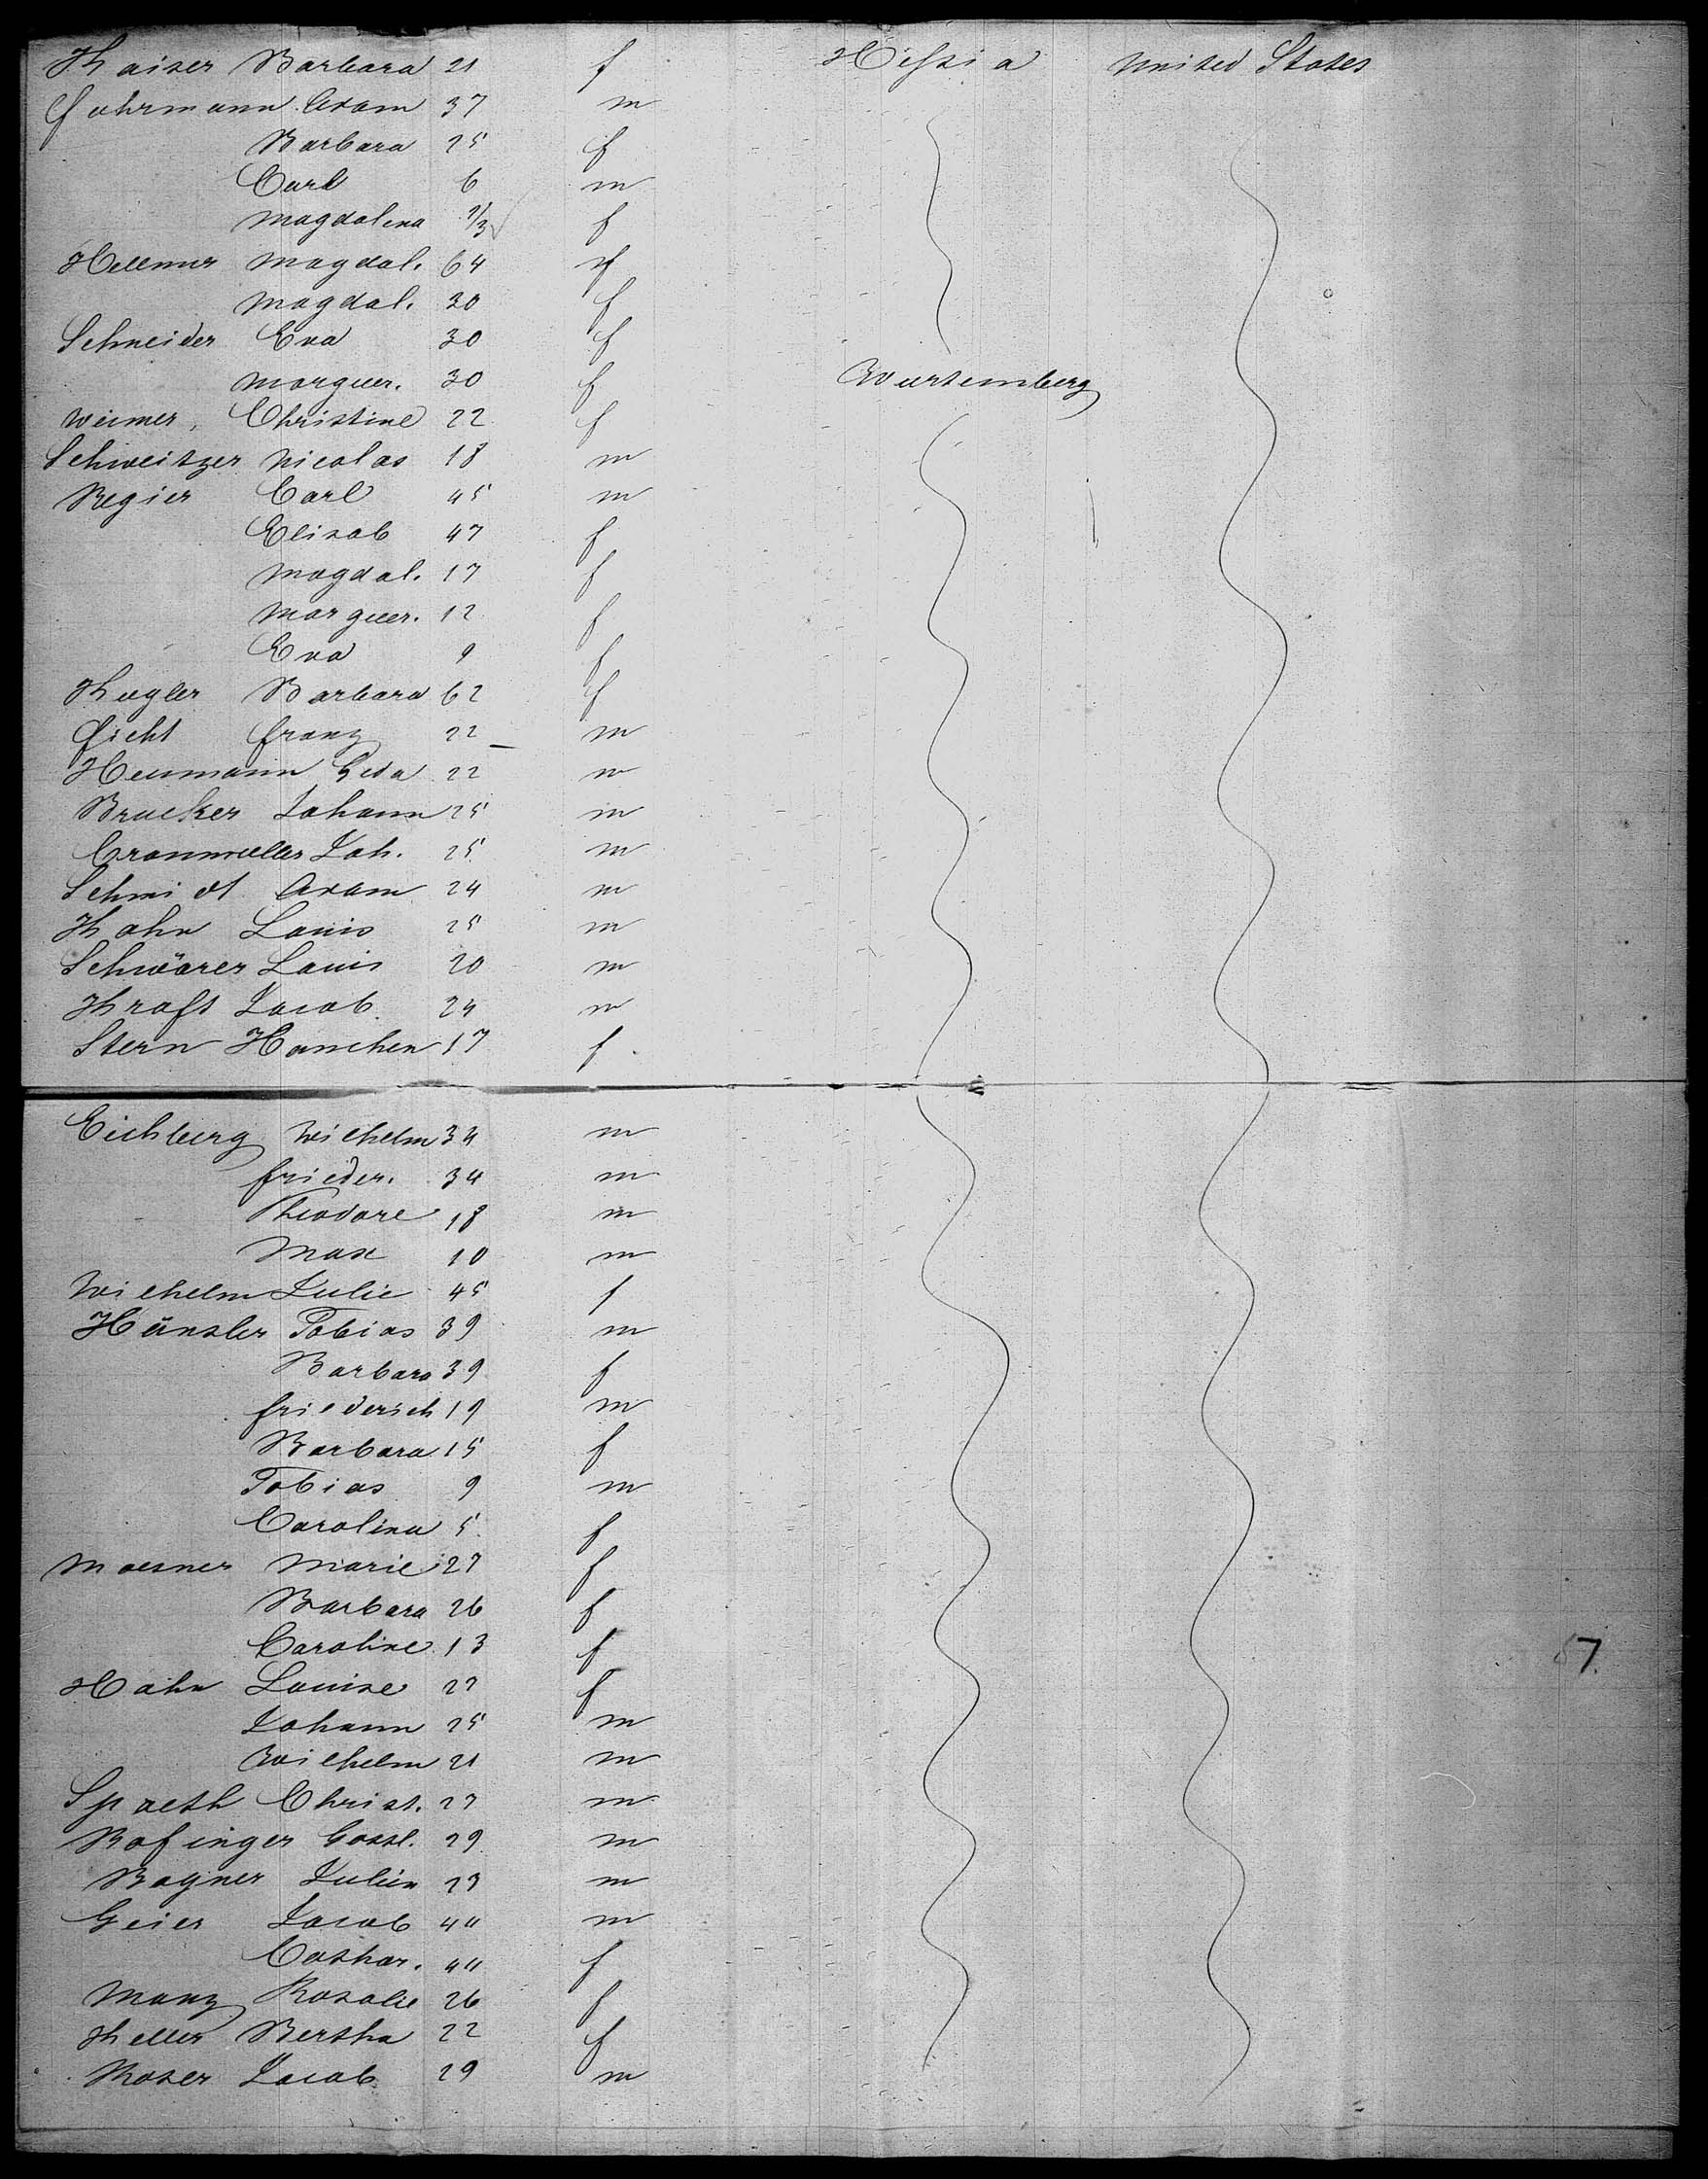 Kaiser Barbara 21 f Hessia United States
Fuhrmann Adam 37 m
Barbara 25 f
Carl 6 m
Magdalena f
Hellmer Magdal. 64 f
Magdal. 30 f
Schneider Eva 30 f
Marguer. 30 f Wurtemberg
Weimer, Christine 22 f
Schweitzer Nicolas 18 m
Regier Carl 45 m
Elisab 47 f
Magdal. 17 f
Marguer. 12 f
Eva 9 f
Kugler Barbara 62 f
Ficht Franz 22 m
Heumann 22 m
Brucker Johann 25 m
Cronmuller Joh. 25 m
Schmidt Adam 24 m
Hahn Louis 25 m
Schwärer Louis 20 m
Kraft Jacob 24 m
Stern Hanchen 17 f
Eichberg Wilhelm 34 m
Frieder. 34 m
Theodore 18 m
Max 10 m
Wilhelm Julie 45 f
Hänsler Tobias 39 m
Barbara 39 f
Friederich 19 m
Barbara 15 f
Tobias 9 m
Carolina 5 f
Maesner Marie 27 f
Barbara 26 f
Caroline 13 f
57.
Hahn Louise 27 f
Johann 25 m
Wilhelm 21 m
Spaeth Christ. 27 m
Bofinger Gottl. 29 m
Wagner Julien 23 m
Geier Jacob 44 m
Cathar. 44 f
Manz Rosalie 26 f
Keller Bertha 22 f
Moser Jacob 29 m